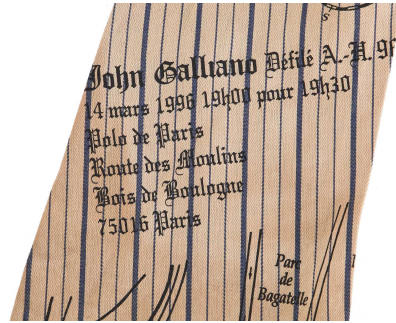 John Galliano Défilé A.-H. 96
14 mars 1996 19h00 pour 19h30
Polo de Paris
Route des Moulins
Bois de Boulogne
75016 Paris
Parc
de
Bagatelle